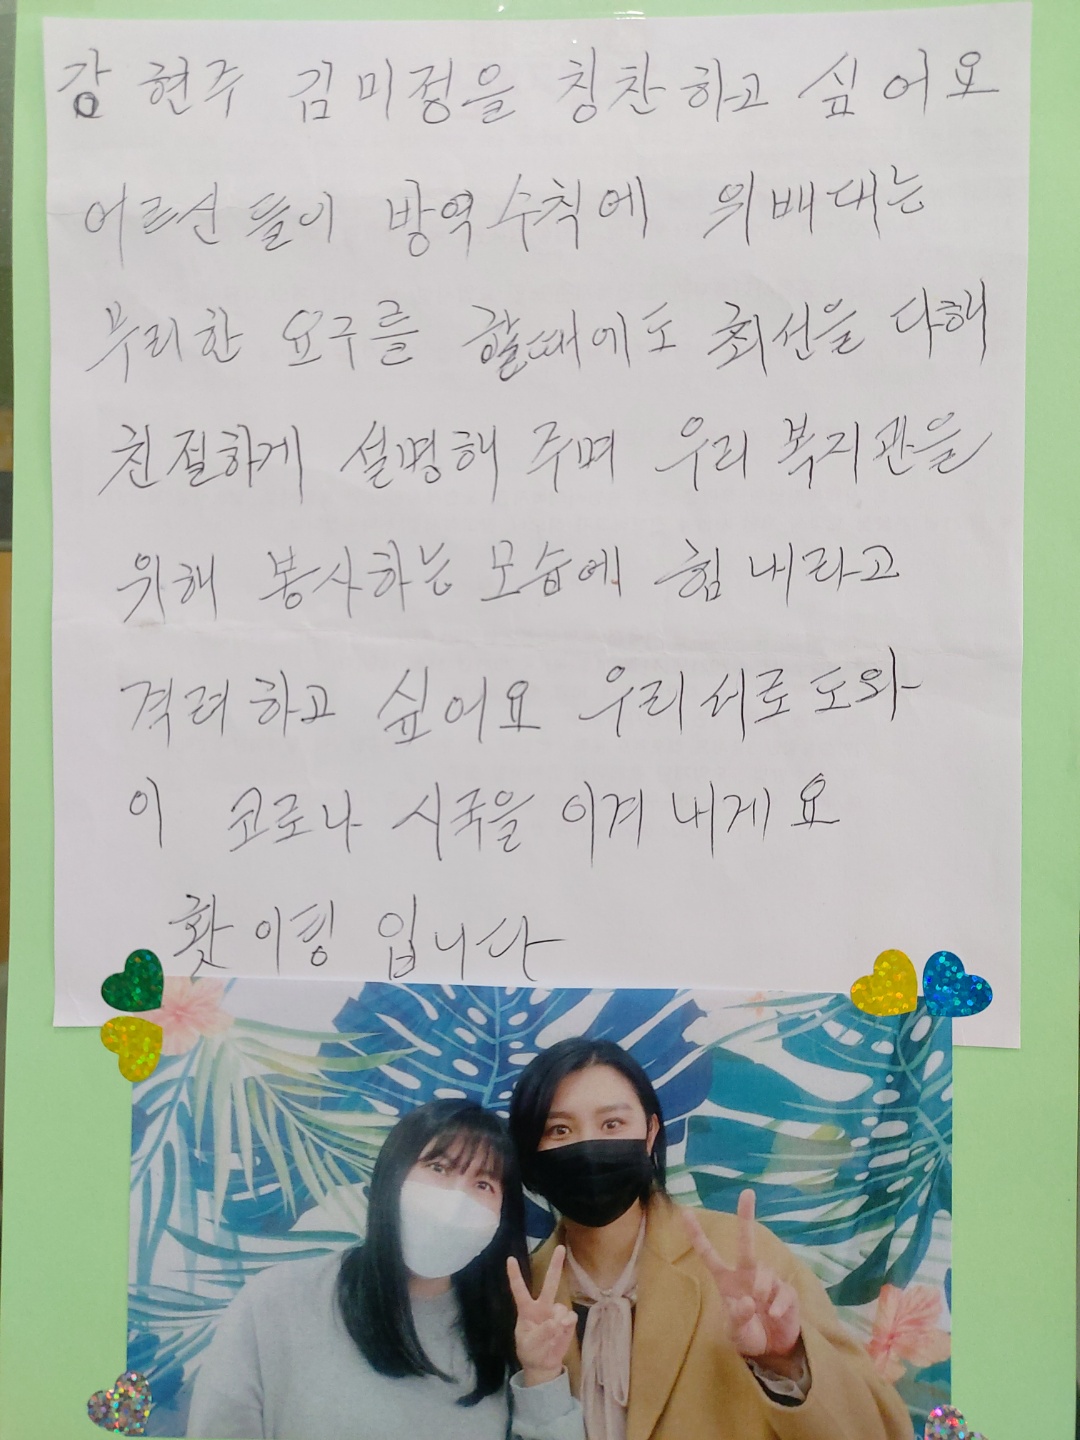 강현주 김미정을 칭찬하고 싶어요
어르신들이 방역수칙에 위배대는
무리한 요구를 할때에도 최선을 다해
친절하게 설명해 주며 우리 복지관을
위해 봉사하는 모습에 힘내라고
격려하고 싶어요 우리서로도와
이 코로나 시국을 이겨내게요
홧이팅 입니다